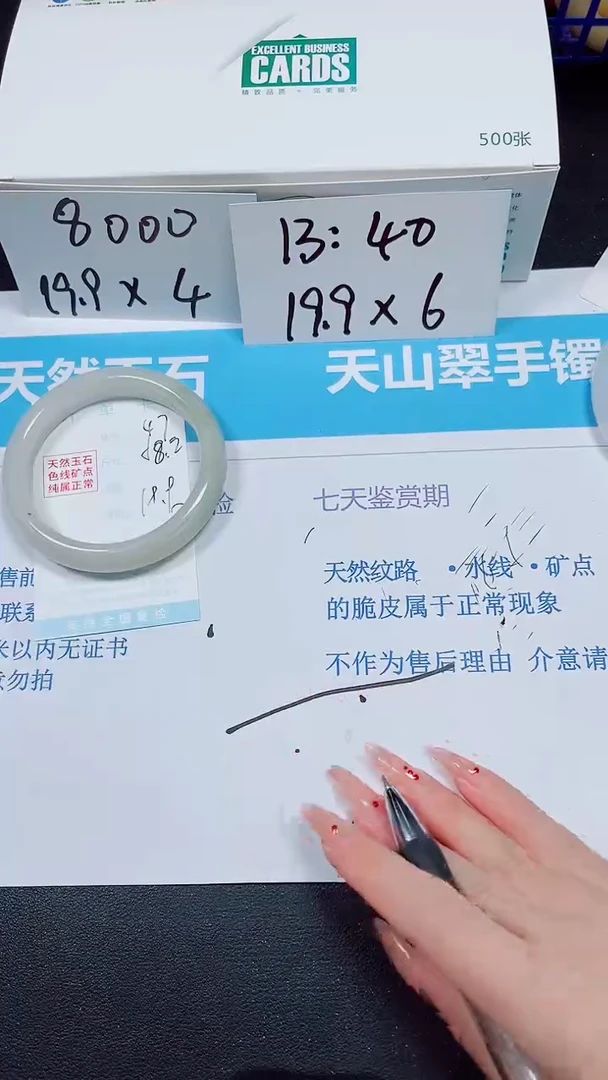 EXCELLENT BUSINESS
CARDS
精致品质 · 完美服务
500张
8000
19.9 × 4
13:40
19.9 × 6
天然玉石
天山翠手镯
天然玉石
色线矿点
纯属正常
验
七天鉴赏期
天然纹路 ·水线 ·矿点
的脆皮属于正常现象
不作为售后理由 介意请
售前
联系
支持全国复检
米以内无证书
意勿拍